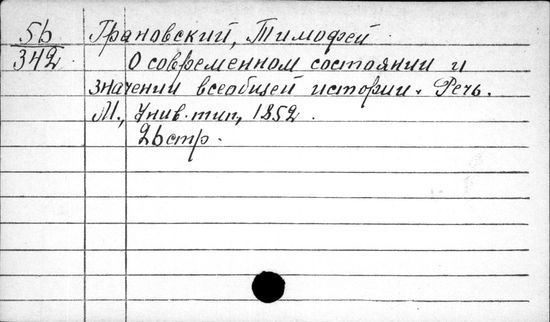 56 Грановский, Тимофей
342 О современном состоянии и
значении всеобщей истории. Речь.
М., Унив. тип., 1852.
26 стр.